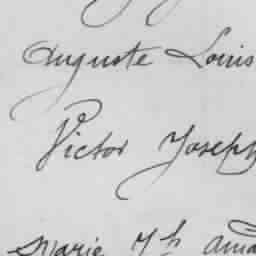 Auguste Louis
Victor Joseph
Marie Jh